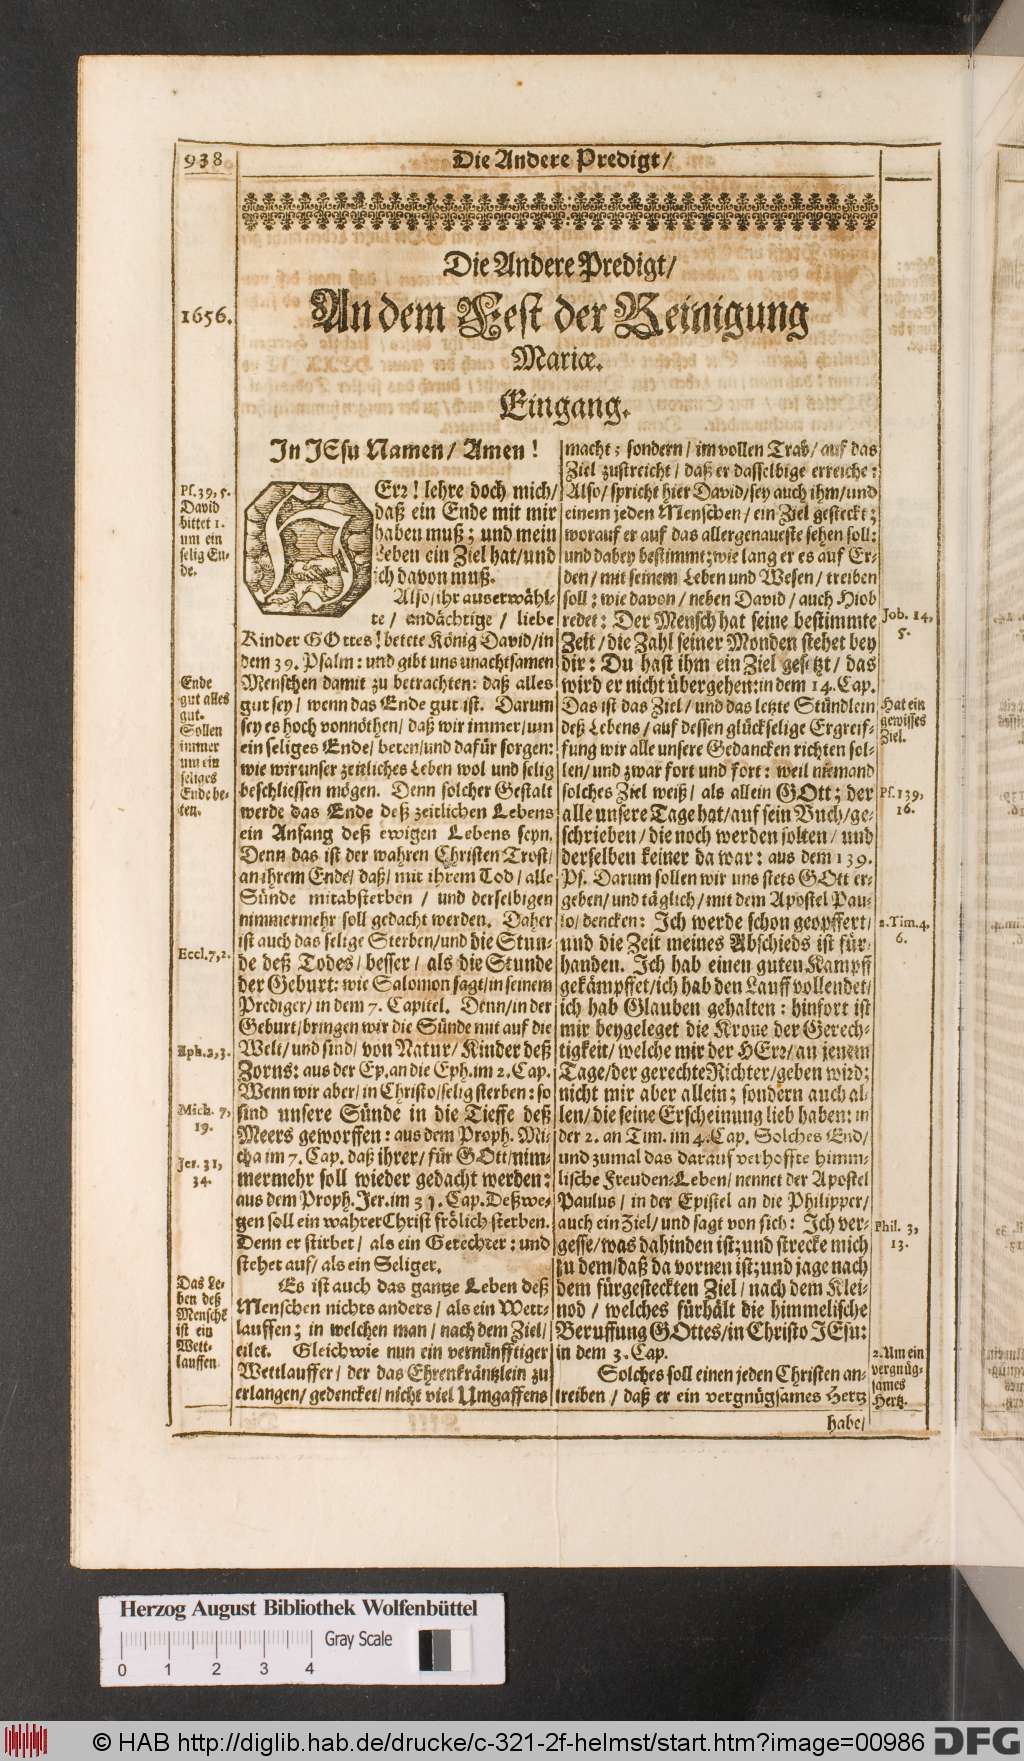 938
Die Andere Predigt/
Die Andere Predigt/
1656.
An dem Fest der Reinigung
Mariæ.
Eingang.
In JEsu Namen/ Amen!
Ps. 39, 5.
David
bittet 1.
um ein
selig En-
de.
HErr! lehre doch mich/
daß ein Ende mit mir
haben muß; und mein
Leben ein Ziel hat/und
ich davon muß.
Also/ihr auserwähl-
te/ andächtige/ liebe
Kinder GOttes! betete König David/in
dem 39. Psalm: und gibt uns unachtsamen
Menschen damit zu betrachten: daß alles
gut sey/ wenn das Ende gut ist. Darum
sey es hoch vonnöthen/ daß wir immer/um
ein seliges Ende/ beten/und dafür sorgen:
wie wir unser zeitliches Leben wol und selig
beschliessen mögen. Denn solcher Gestalt
werde das Ende deß zeitlichen Lebens
ein Anfang deß ewigen Lebens seyn.
Denn das ist der wahren Christen Trost/
an ihrem Ende/ daß/ mit ihrem Tod/ alle
Sünde mitabsterben/ und derselbigen
nimmermehr soll gedacht werden. Daher
ist auch das selige Sterben/und die Stun-
de deß Todes/ besser/ als die Stunde
der Geburt: wie Salomon sagt/in seinem
Prediger/ in dem 7. Capitel. Denn/in der
Geburt/bringen wir die Sünde mit auf die
Welt/ und sind/ von Natur/ Kinder deß
Zorns: aus der Ep. an die Eph. im 2. Cap.
Wenn wir aber/ in Christo/selig sterben: so
sind unsere Sünde in die Tieffe deß
Meers geworffen: aus dem Proph. Mi-
cha im 7. Cap. daß ihrer/ für GOtt/nim-
mermehr soll wieder gedacht werden:
aus dem Proph. Jer. im 31. Cap. Deßwe-
gen soll ein wahrer Christ frölich sterben.
Denn er stirbet/ als ein Gerechter: und
stehet auf/ als ein Seliger.
Es ist auch das gantze Leben deß
Menschen nichts anders/ als ein Wett-
lauffen; in welchen man/ nach dem Ziel/
eilet. Gleichwie nun ein vernünfftiger
Wettlauffer/ der das Ehrenkräntzlein zu
erlangen/ gedencket/ nicht viel Umgaffens
Ende
gut alles
gut.
Sollen
immer
um ein
seliges
Ende be-
ten.
Eccl. 7, 2.
Eph. 2, 3.
Mich. 7,
19.
Jer. 31,
34.
Das Le-
ben deß
Mensche
ist ein
Wett-
lauffen.
macht; sondern/ im vollen Trab/ auf das
Ziel zustreicht/ daß er dasselbige erreiche:
Also/ spricht hier David/sey auch ihm/und
einem jeden Menschen/ ein Ziel gesteckt;
worauf er auf das allergenaueste sehen soll:
und dabey bestimmt; wie lang er es auf Er-
den/ mit seinem Leben und Wesen/ treiben
soll; wie davon/ neben David/ auch Hiob
redet: Der Mensch hat seine bestimmte
Zeit/ die Zahl seiner Monden stehet bey
dir: Du hast ihm ein Ziel gesetzt/ das
wird er nicht übergehen: in dem 14. Cap.
Das ist das Ziel/ und das letzte Stündlein
deß Lebens/ auf dessen glückselige Ergreif-
fung wir alle unsere Gedancken richten sol-
len/ und zwar fort und fort: weil niemand
solches Ziel weiß/ als allein GOtt; der
alle unsere Tage hat/ auf sein Buch/ge-
schrieben/ die noch werden solten/ und
derselben keiner da war: aus dem 139.
Ps. Darum sollen wir uns stets GOtt er-
geben/ und täglich/ mit dem Apostel Pau-
lo/ dencken: Ich werde schon geopffert/
und die Zeit meines Abschieds ist für-
handen. Ich hab einen guten Kampff
gekämpffet/ich hab den Lauff vollendet/
ich hab Glauben gehalten: hinfort ist
mir beygeleget die Krone der Gerech-
tigkeit/ welche mir der HErr/ an jenem
Tage/der gerechte Richter/geben wird;
nicht mir aber allein; sondern auch al-
len/ die seine Erscheinung lieb haben: in
der 2. an Tim. im 4. Cap. Solches End/
und zumal das darauf verhoffte himm-
lische Freuden-Leben/ nennet der Apostel
Paulus/ in der Epistel an die Philipper/
auch ein Ziel/ und sagt von sich: Ich ver-
gesse/was dahinden ist; und strecke mich
zu dem/daß da vornen ist; und jage nach
dem fürgesteckten Ziel/ nach dem Klei-
nod/ welches fürhält die himmelische
Beruffung GOttes/in Christo JEsu:
in dem 3. Cap.
Solches soll einen jeden Christen an-
treiben/ daß er ein vergnügsames Hertz
Job. 14,
5.
Hat ein
gewisses
Ziel.
Ps. 139,
16.
2. Tim. 4,
6.
Phil. 3,
13.
2. Um ein
vergnüg-
sames
Hertz.
habe/
Herzog August Bibliothek Wolfenbüttel
Gray Scale
0 1 2 3 4
© HAB http://diglib.hab.de/drucke/c-321-2f-helmst/start.htm?image=00986
DFG